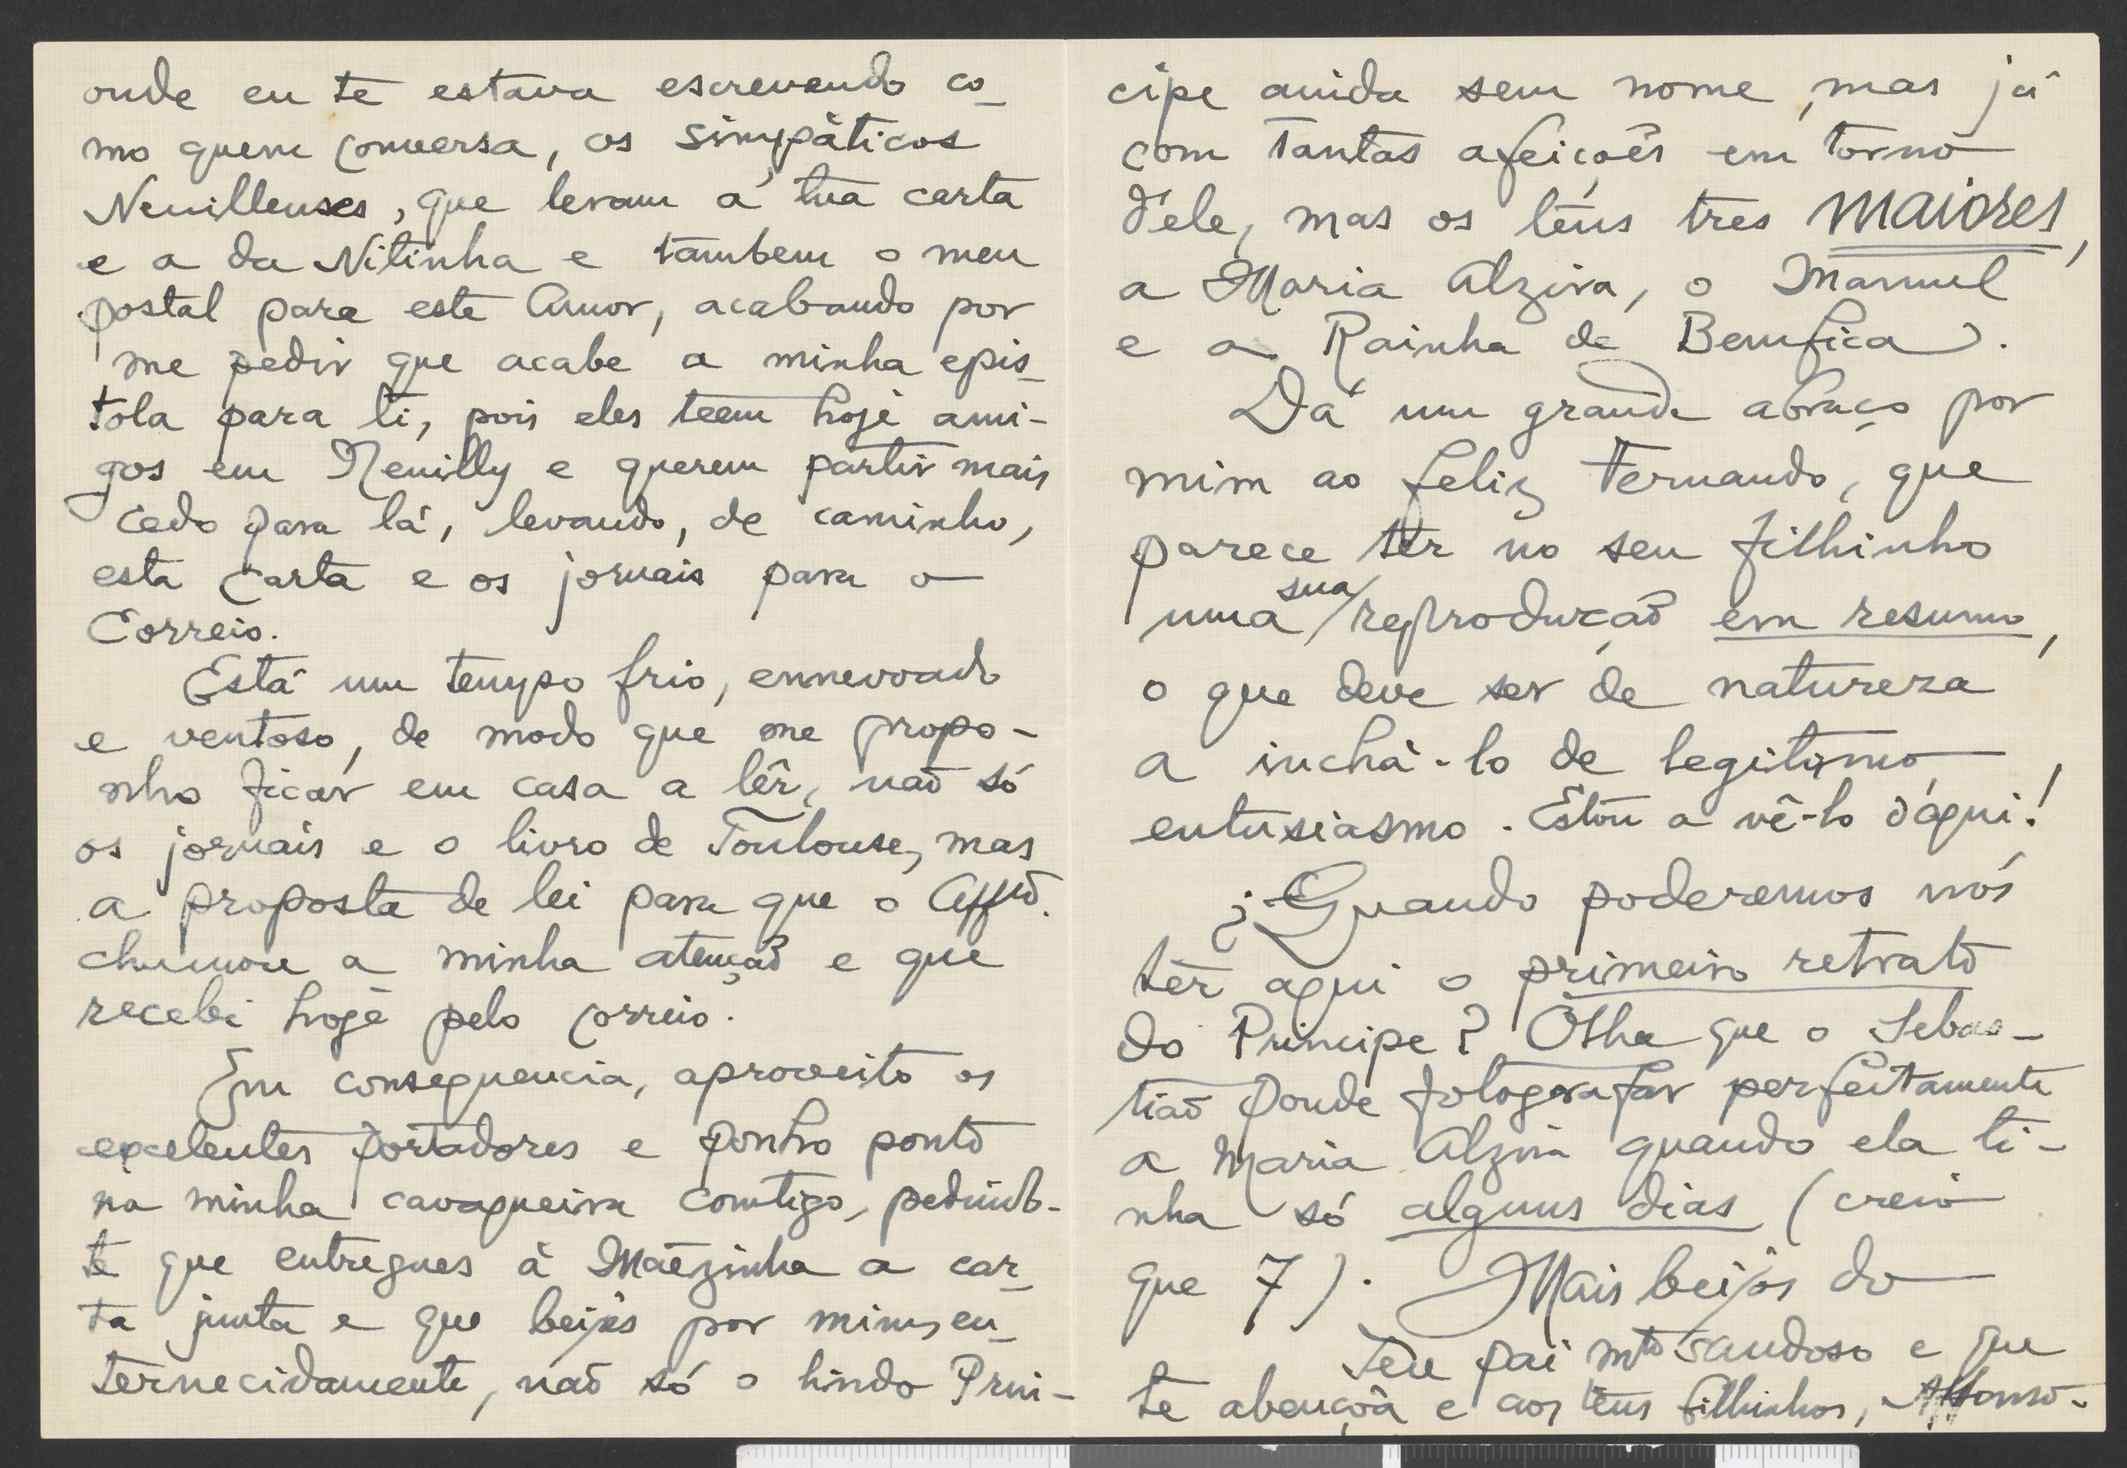 onde eu te estava escrevendo co-
mo quem conversa, os simpáticos
Neuillenses, que levam a tua carta
e a da Nitinha e tambem o meu
postal para este Amor, acabando por
me pedir que acabe a minha epis-
tola para ti, pois eles teem hoje ami-
gos em Neuilly e querem partir mais
cedo para lá, levando, de caminho,
esta carta e os jornais para o
Correio.
Está um tempo frio, ennevoado
e ventoso, de modo que me propo-
nho ficar em casa a lêr, não só
os jornais e o livro de Toulouse, mas
a proposta de lei para que o Affº.
chamou a minha atenção e que
recebi hoje pelo correio.
Em consequencia, aproveito os
excelentes portadores e ponho ponto
na minha cavaqueira comtigo, pedindo-
te que entregues à Mãezinha a car-
ta junta e que beijes por mim, en-
ternecidamente, não só o lindo Prin-
cipe ainda sem nome, mas já
com tantas afeições em torno
d'ele, mas os teus tres maiores,
a Maria Alzira, o Manuel
e a Rainha de Bemfica).
Dá um grande abraço por
mim ao feliz Fernando, que
parece ter no seu filhinho
uma sua reprodução em resumo,
o que deve ser de natureza
a inchá-lo de legitimo
entusiasmo. Estou a vê-lo d'aqui!
¿Quando poderemos nós
ter aqui o primeiro retrato
do Principe? Olha que o Sebas-
tião poude fotografar perfeitamente
a Maria Alzira quando ela ti-
nha só alguns dias (creio
que 7). Mais beijos do
Teu pai mtº saudoso e que
te abençoa e aos teus filhinhos, Affonso.